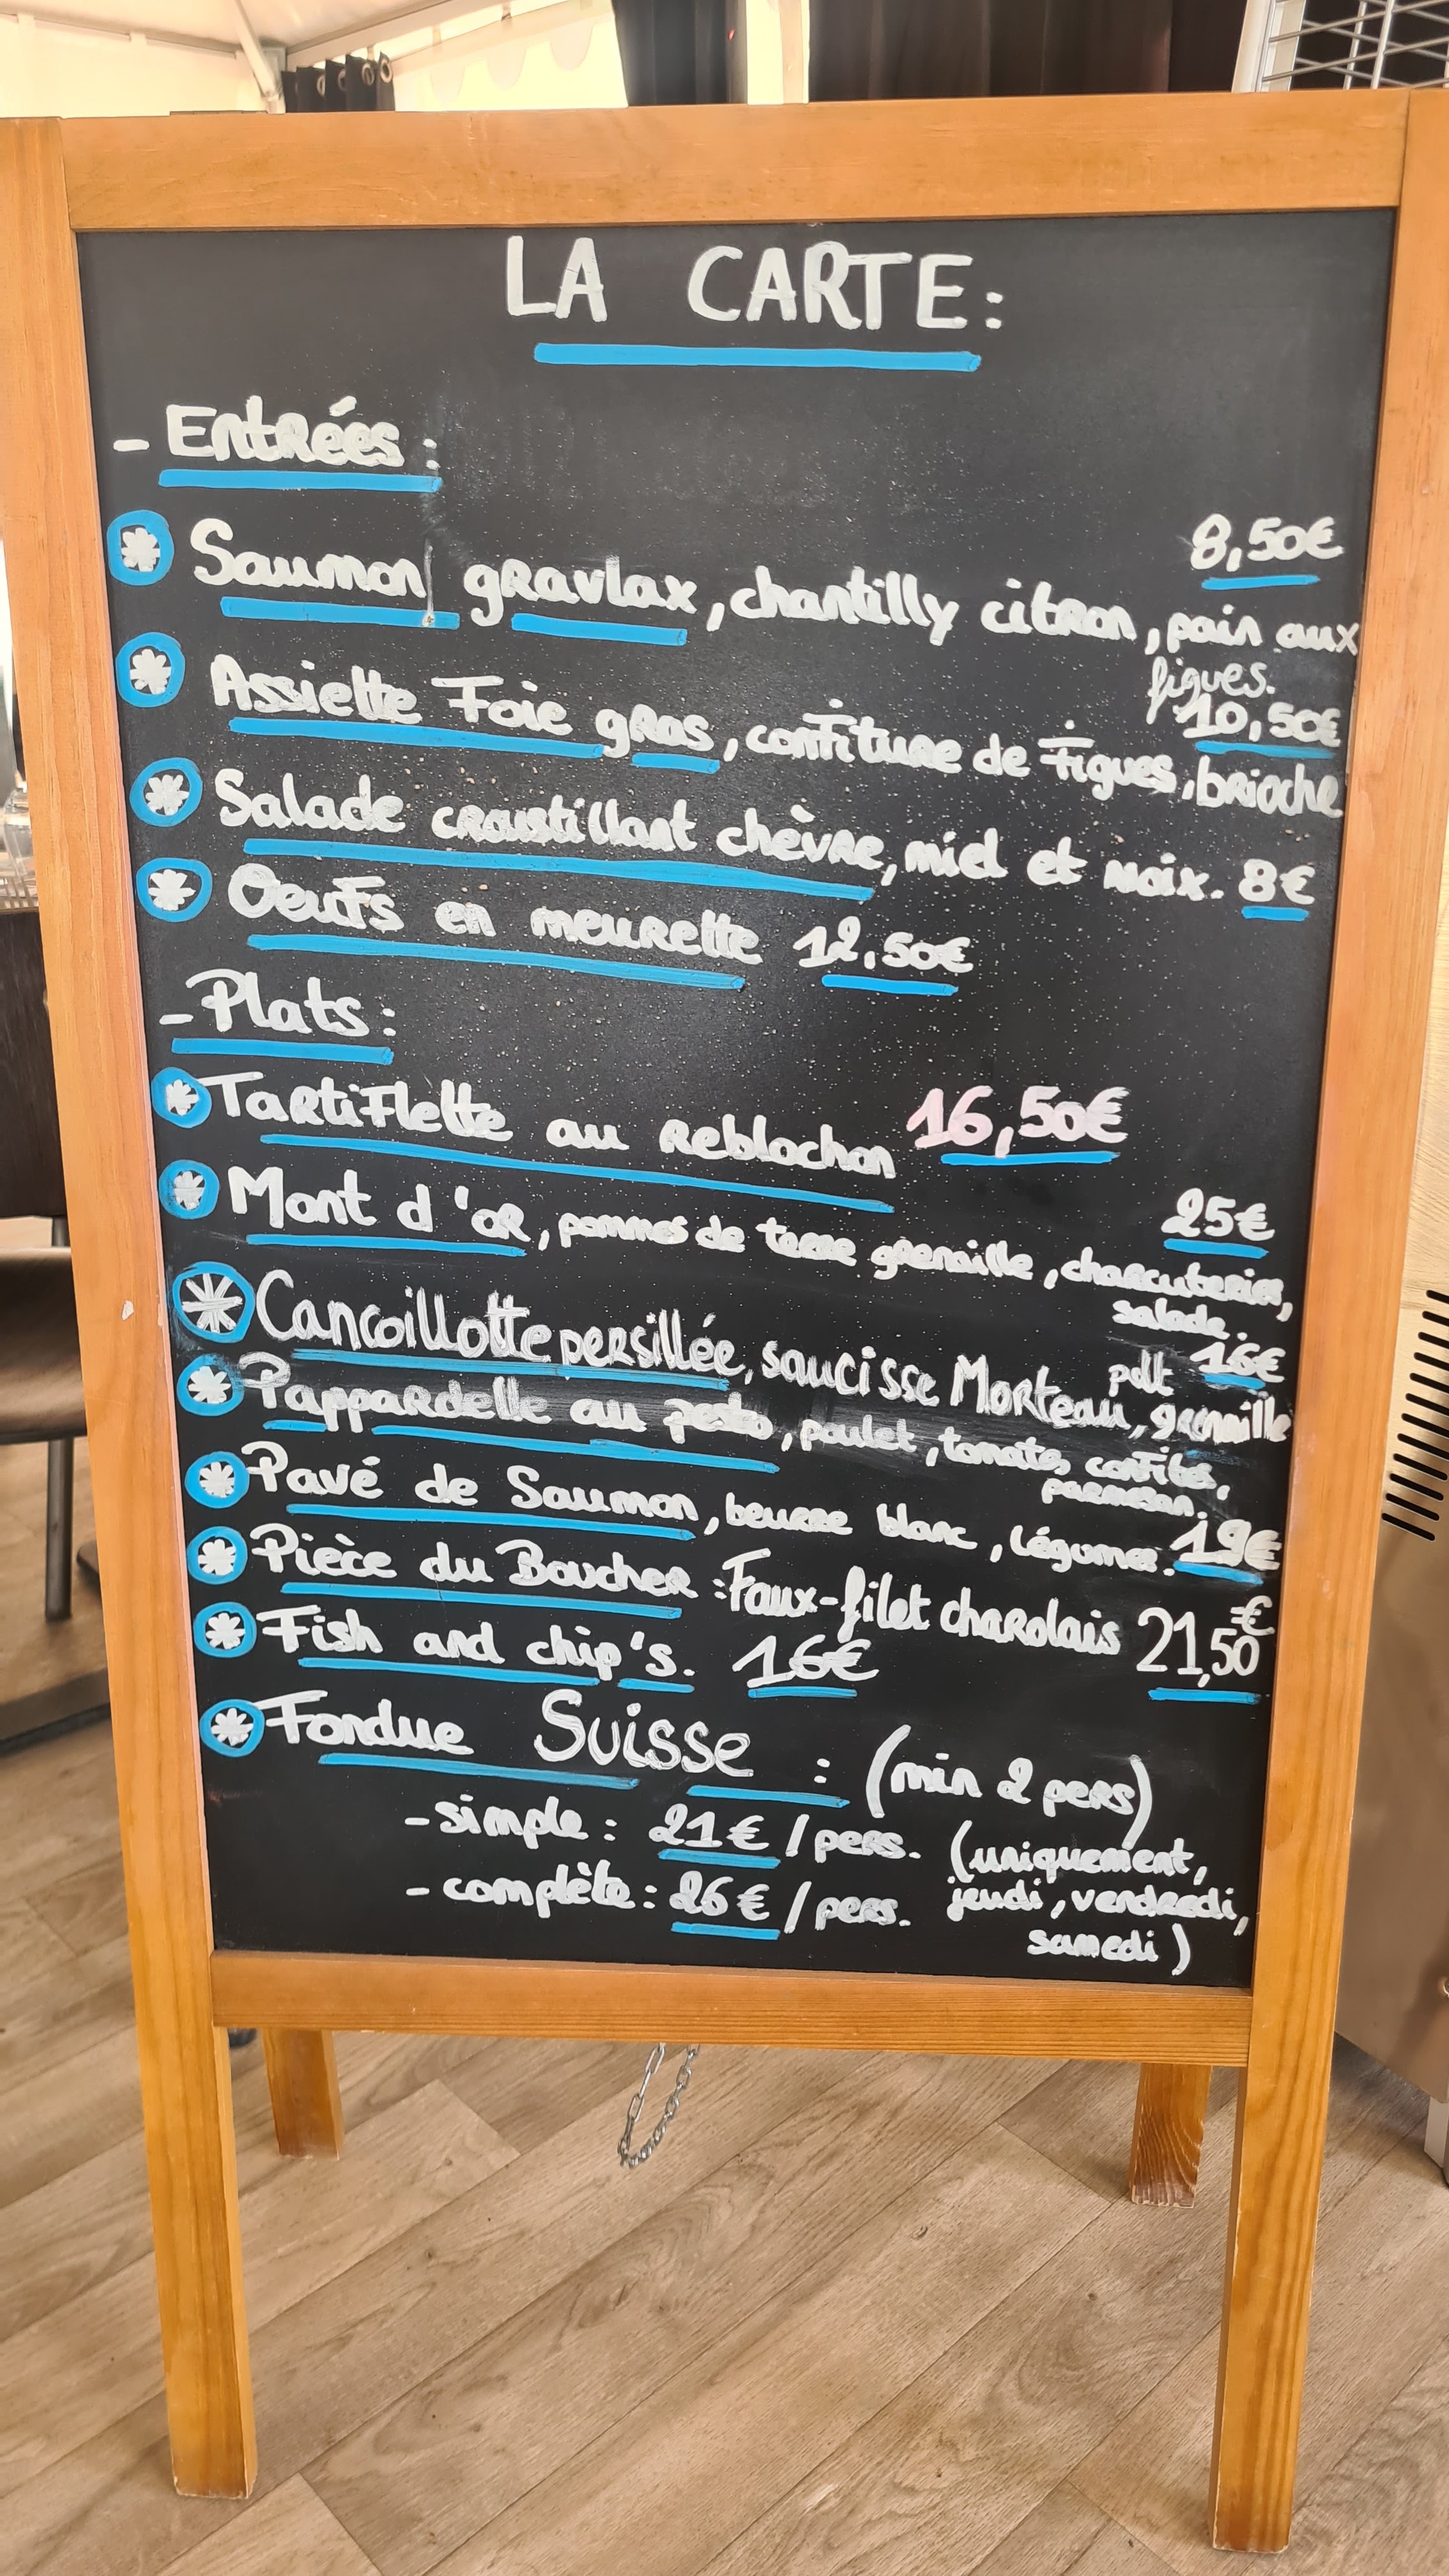 LA CARTE:
- Entrées:
8,50€
Saumon gravlax, chantilly citron, pain aux
figues.
10,50€
Assiette Foie gras, confiture de Figues, brioche
Salade croustillant chèvre, miel et noix. 8€
Oeufs en meurette 12,50€
- Plats:
Tartiflette au reblochon 16,50€
25€
Mont d'or, pommes de terre grenaille, charcuteries,
salade.
pdt 16€
Cancoillotte persillée, saucisse Morteau, grenaille
Pappardelle au pesto, poulet, tomates confites,
parmesan.
Pavé de Saumon, beurre blanc, légumes. 19€
Pièce du Boucher: Faux-filet charolais 21,50€
Fish and chip's. 16€
Fondue Suisse : (min 2 pers)
- simple: 21€ / pers. (uniquement,
- complète: 26€ / pers. jeudi, vendredi,
samedi)